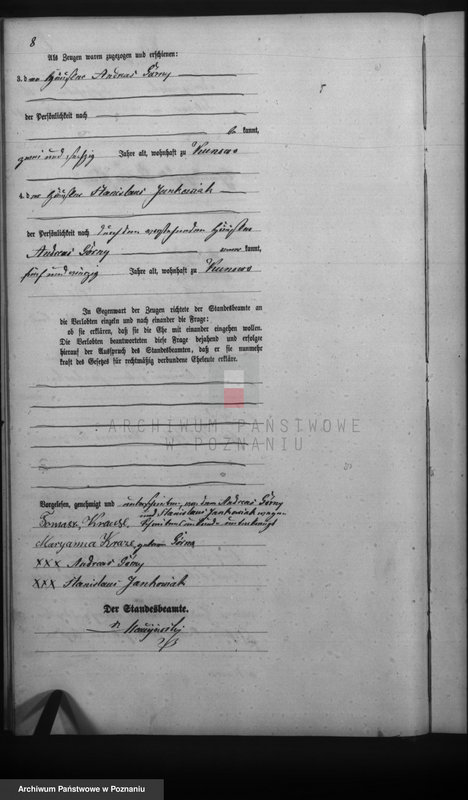 8
Als Zeugen waren zugezogen und erschienen:
3. der Häusler Andreas Górny
der Persönlichkeit nach
be kannt,
zwei und sechzig Jahre alt, wohnhaft zu Kunowo
4. der Häusler Stanislaus Jankowiak
der Persönlichkeit nach durch den vorstehenden Häusler
Andreas Górny kannt,
fünf und vierzig Jahre alt, wohnhaft zu Kunowo
In Gegenwart der Zeugen richtete der Standesbeamte an
die Verlobten einzeln und nach einander die Frage:
ob sie erklären, daß sie die Ehe mit einander eingehen wollen.
Die Verlobten beantworteten diese Frage bejahend und erfolgte
hierauf der Ausspruch des Standesbeamten, daß er sie nunmehr
kraft des Gesetzes für rechtmäßig verbundene Eheleute erkläre.
ARCHIWUM PAŃSTWOWE
W POZNANIU
Vorgelesen, genehmigt und unterschrieben, von dem Andreas Górny
und Stanislaus Jankowiak wegen
Tomasz Kraezk, Schreibensunkunde unterkreuzt
Maryanna Kraze, geborne Górna
XXX Andreas Górny
XXX Stanislaus Jankowiak
Der Standesbeamte.
Archiwum Państwowe w Poznaniu